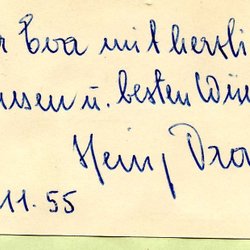 r Eva mit herzli
üssen u. besten Wün
Heinz Dra
.11.55